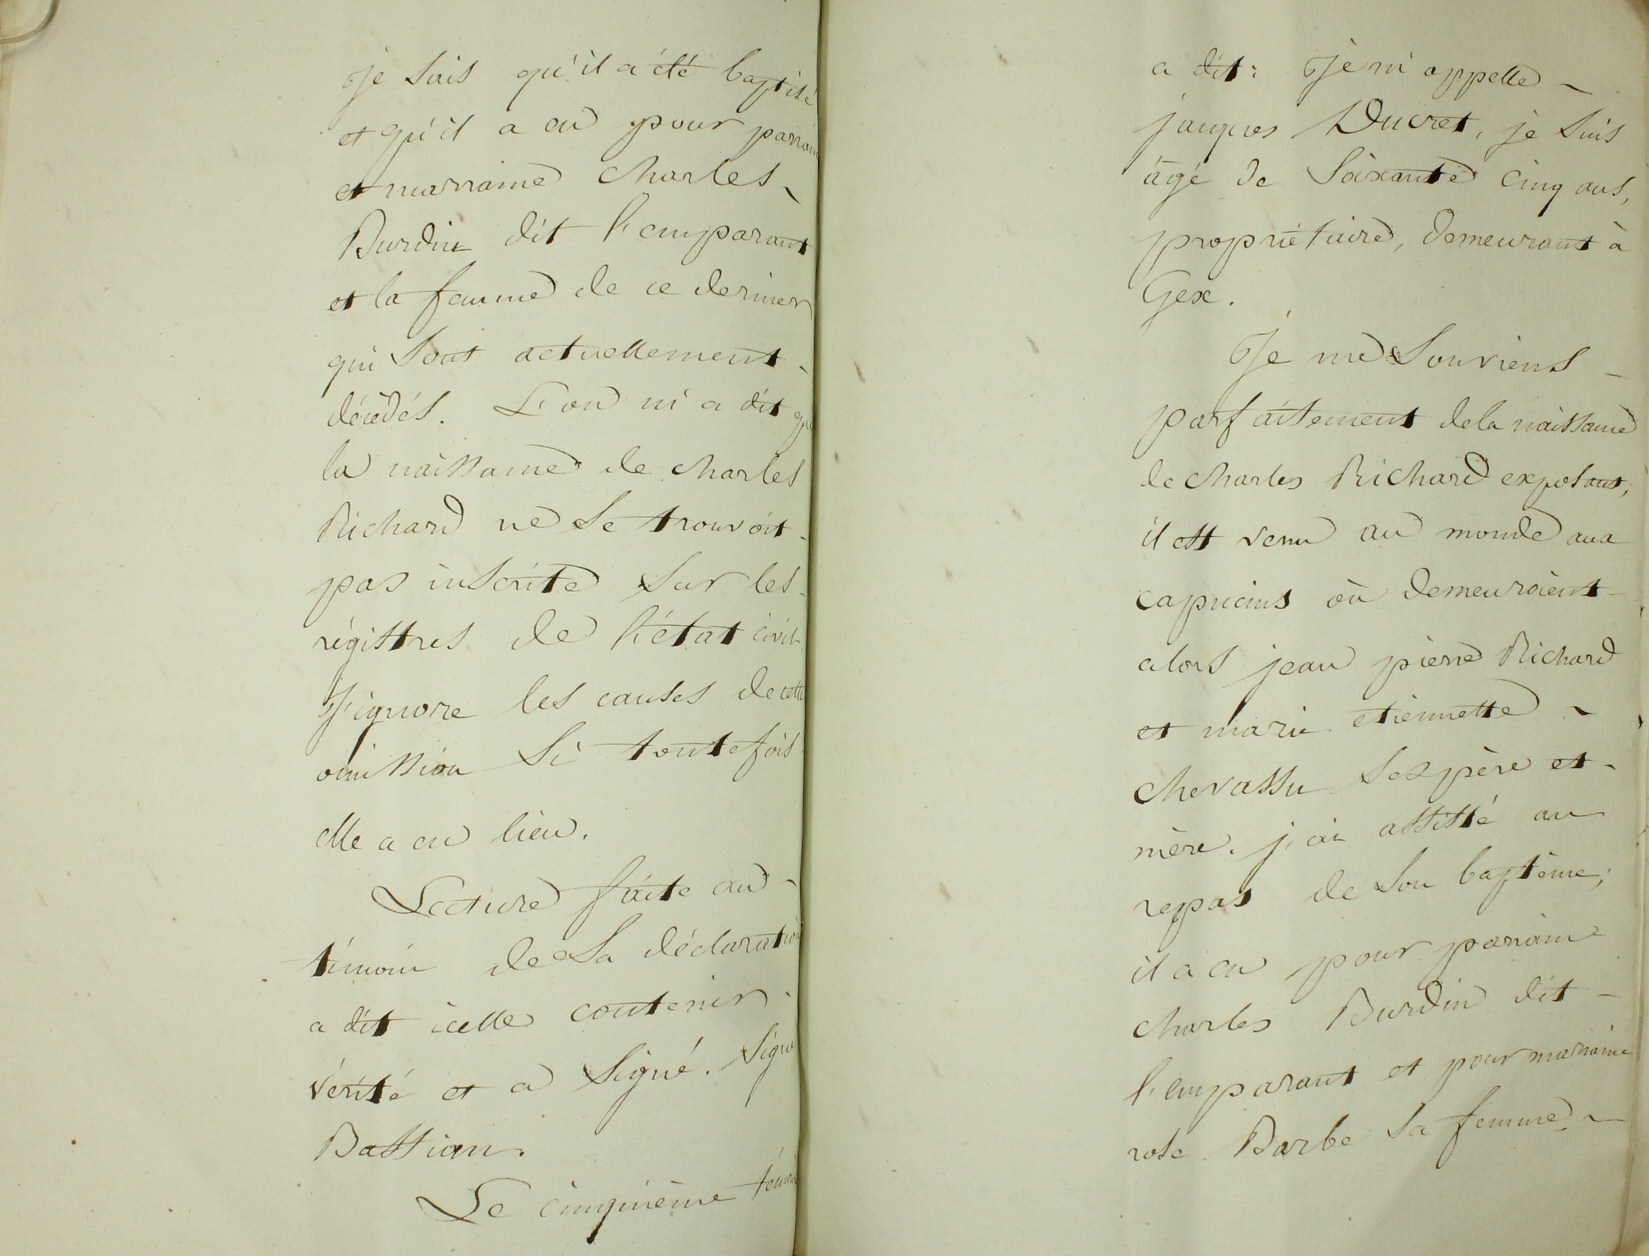 Je sais qu'il a été baptisé
et qu'il a eu pour parrain
et marraine Charles
Burdin dit l'emparant
et la femme de ce dernier
qui sont actuellement
décédés. L'on m'a dit que
la naissance de Charles
Richard ne se trouvoit
pas inscrite sur les
régistres de l'état civil
J'ignore les causes de cette
omission si toutefois
elle a eu lieu.
Lecture faite au
témoin de sa déclaration
a dit icelle contenir
vérité et a signé. Signé
Bastian.
Le cinquième témoin
a dit: Je m'appelle
jacques Ducret, je suis
âgé de soixante cinq ans,
propriétaire, demeurant à
Gex.
Je me souviens
parfaitement de la naissance
de Charles Richard exposant,
il est venu au monde aux
capucins où demeuroient
alors jean pierre Richard
et marie etiennette
Chevassu ses père et
mère. j'ai assisté au
repas de son baptême;
il a eu pour parrain
Charles Burdin dit
l'emparant et pour marraine
rose Barbe sa femme.